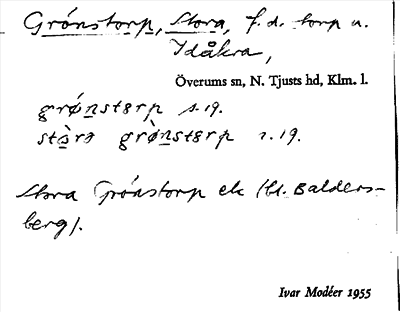 Grönstorp, Stora, f.d. torp u.
Idåkra,
Överums sn, N. Tjusts hd, Klm. l.
grǿnstɐrp s.19.
stòra grǿ̀nstɐrp s.19.
Stora Grönstorp ek (bl. Balders-
berg).
Ivar Modéer 1955